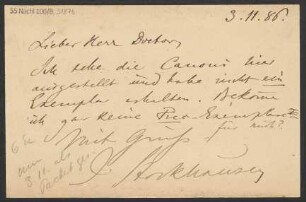 SS Nachl 200/B, 31871
3.11.86.
Lieber Herr Doctor,
Ich sehe die Canons hier
ausgestellt und habe nicht ein
Exemplar erhalten. Bekäme
ich gar keine Frei-Exemplare
für mich?
Mit Gruß
Stockhausen
6 Ex
3 11. als
Packet